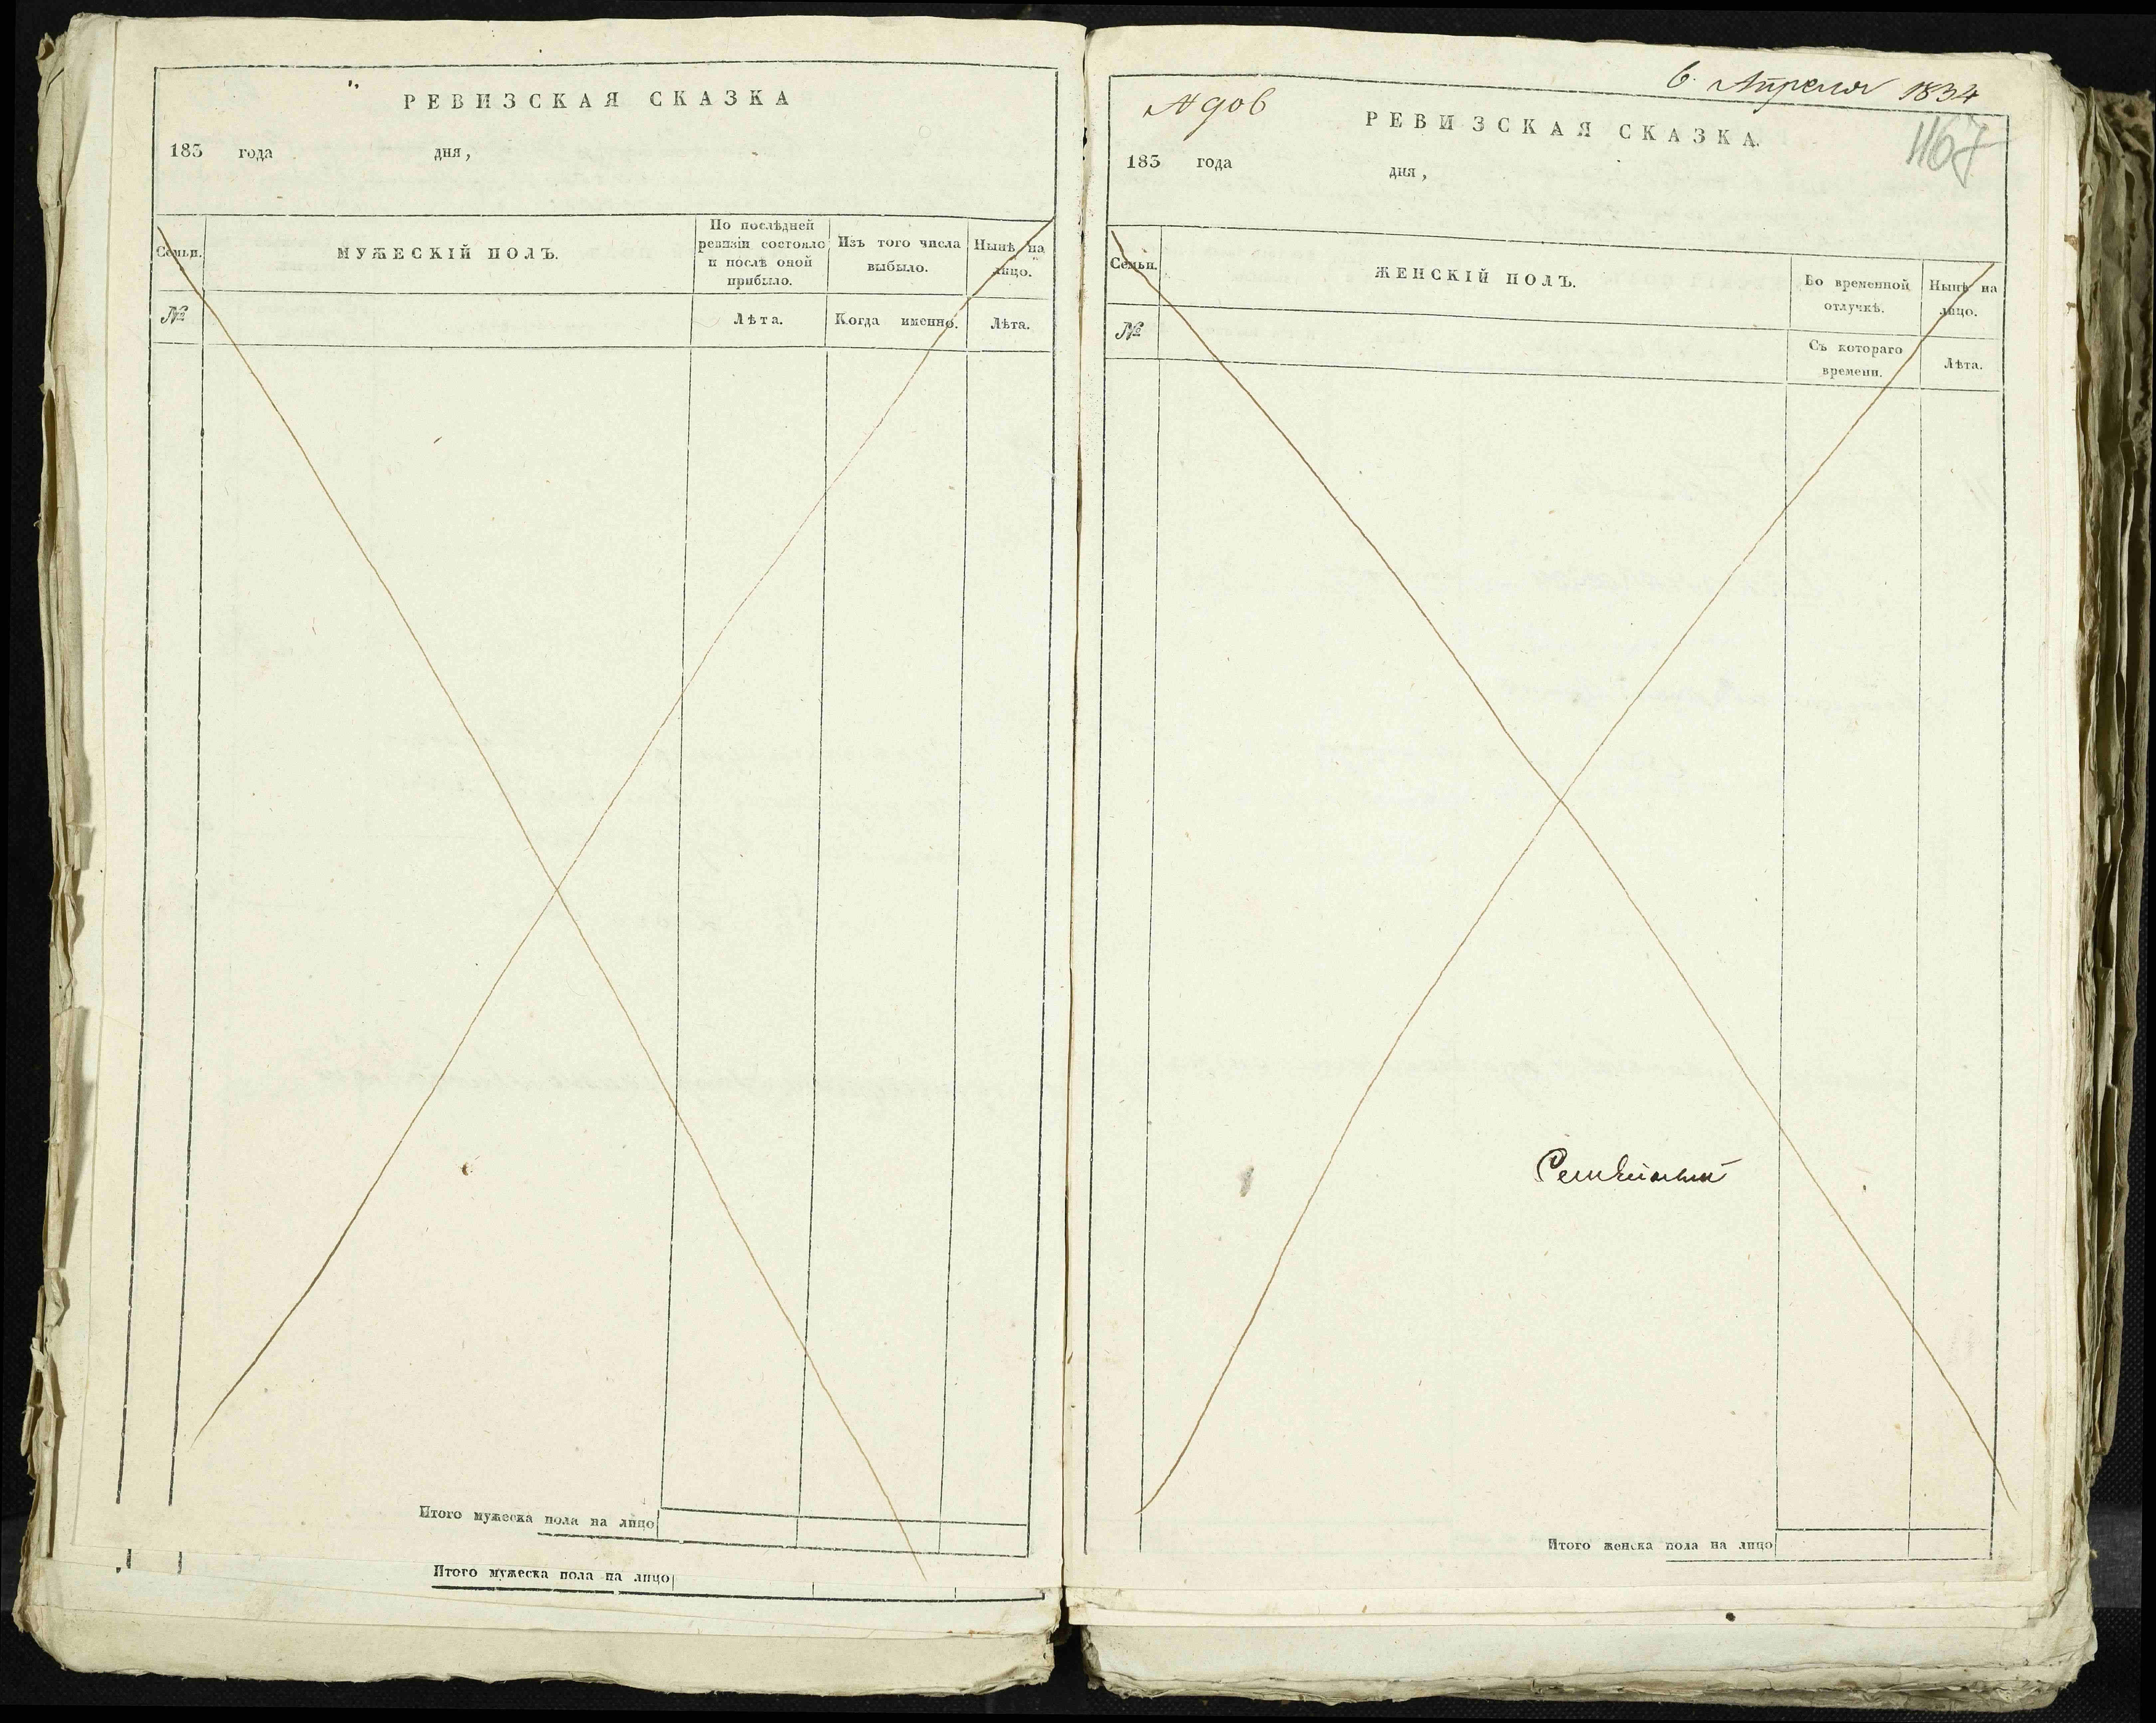 РЕВИЗСКАЯ СКАЗКА
183 года дня,
Семьи.
МУЖЕСКІЙ ПОЛЪ.
По послѣдней ревизіи состояло и послѣ оной прибыло.
Изъ того числа выбыло.
Нынѣ на лицо.
№
Лѣта.
Когда именно.
Лѣта.
Итого мужеска пола на лицо
Итого мужеска пола на лицо
6. Апреля 1834
№ 906
1167
РЕВИЗСКАЯ СКАЗКА.
183 года дня,
Семьи.
ЖЕНСКІЙ ПОЛЪ.
Во временной отлучкѣ.
Нынѣ на лицо.
№
Съ котораго времени.
Лѣта.
Итого женска пола на лицо